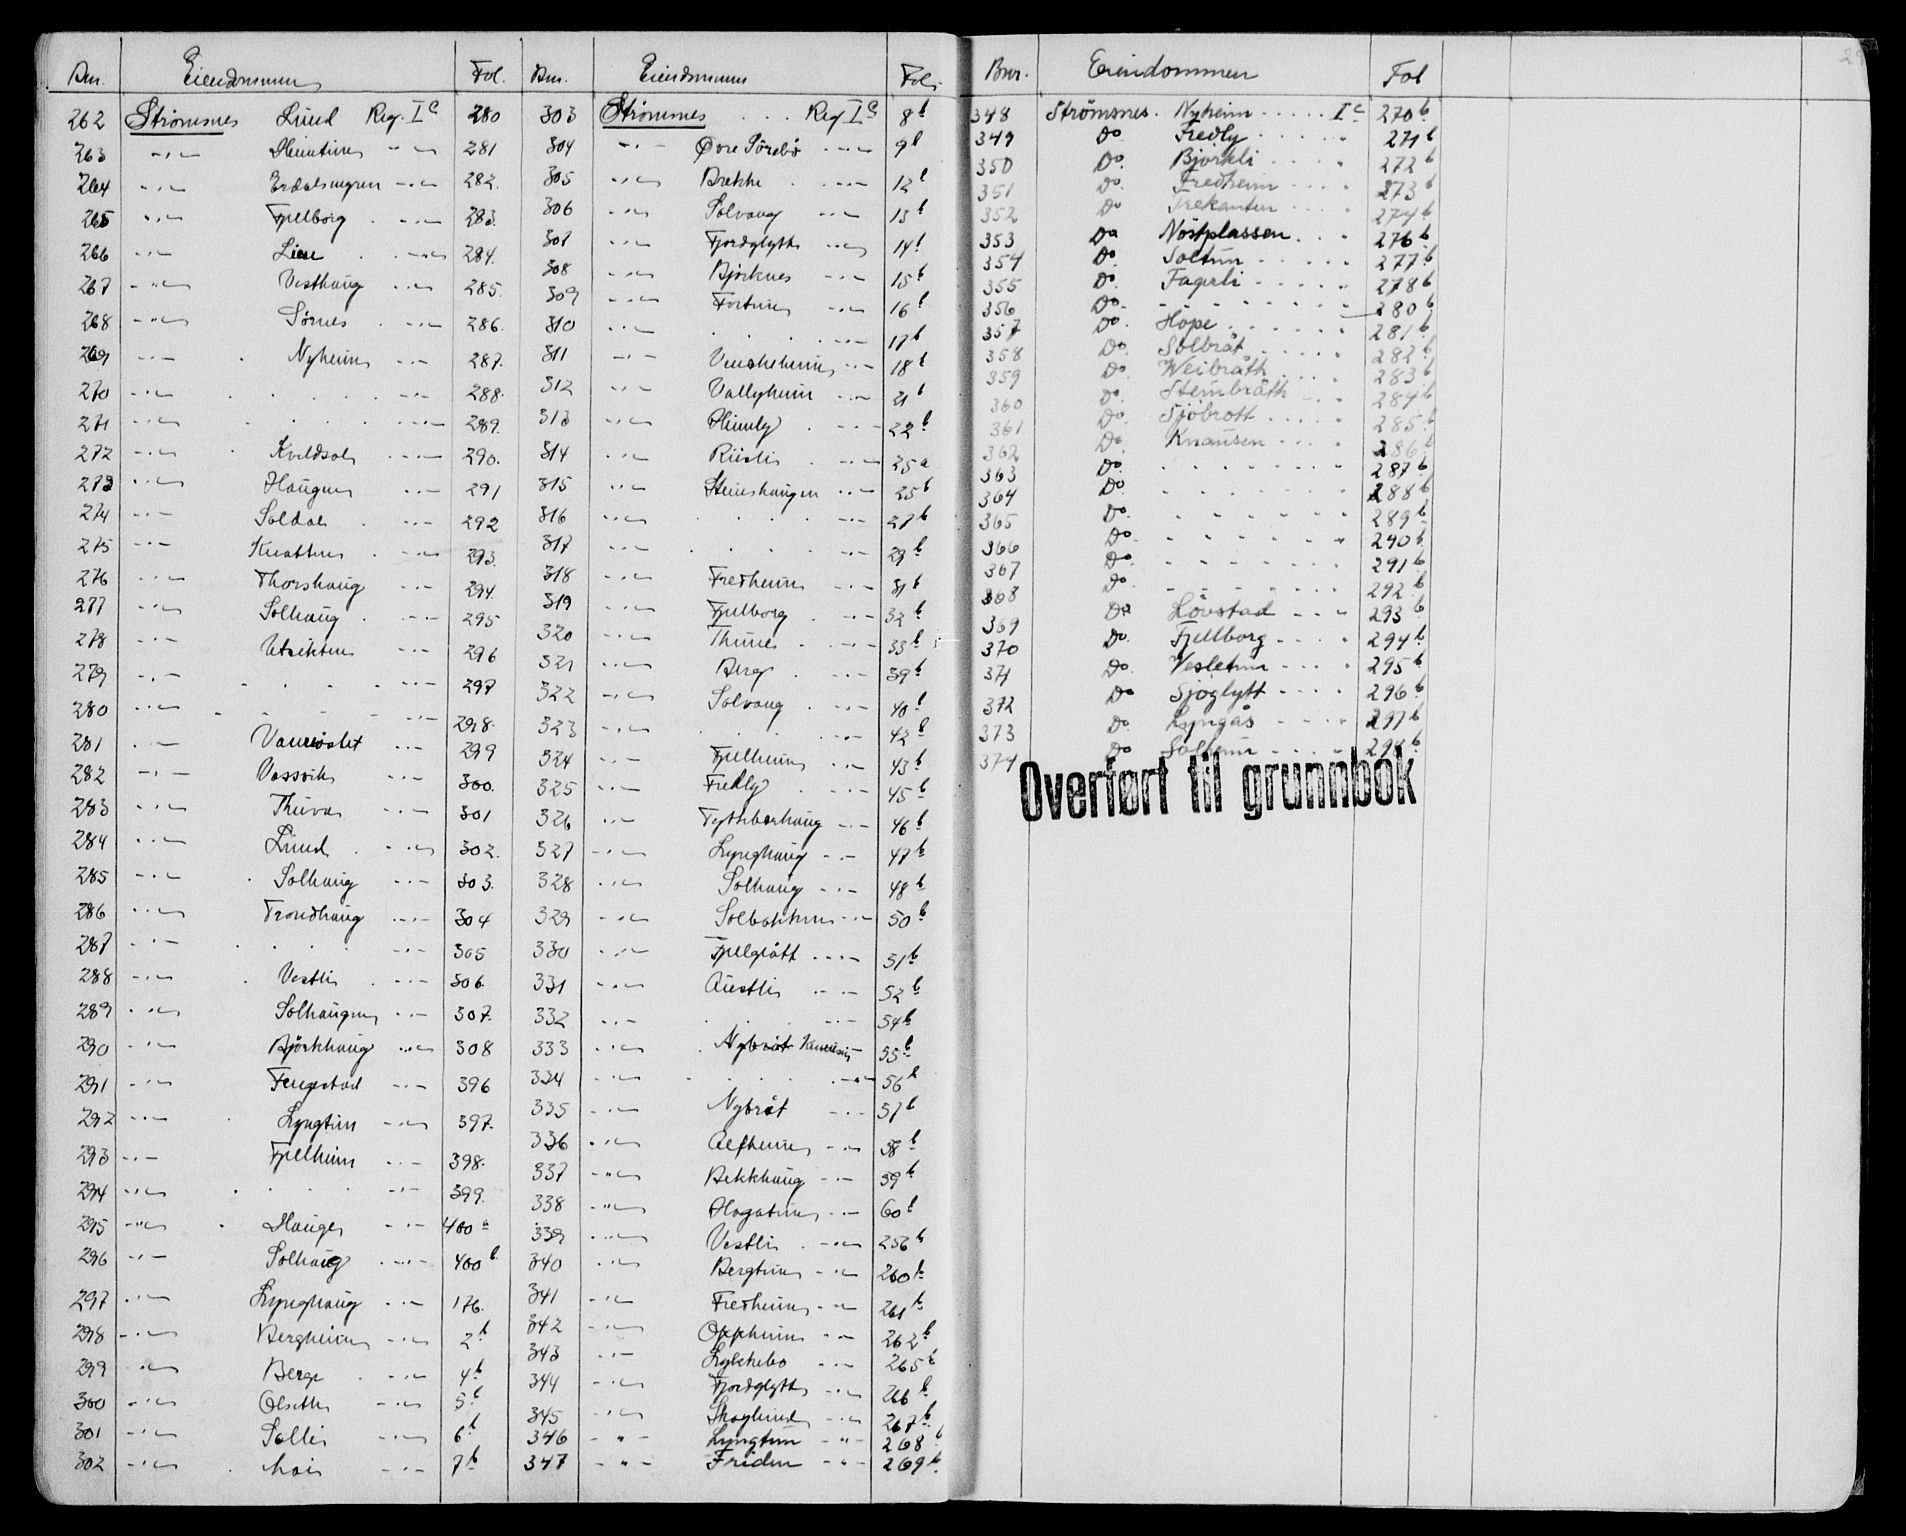 Bnr. Eiendommen Fol.
262 Strømsnes Lund Reg. I c 280
263 -"- 281
264 -"- -"- 282.
265 -"- Fjellborg -"- 283.
266 -"- Lien -"- 284.
267 -"- Vesthaug -"- 285.
268 -"- Sørnes -"- 286.
269 -"- Nyheim -"- 287.
270 -"- . . . . -"- 288.
271 -"- . . . . -"- 289.
272 -"- Kveldsol -"- 290.
273 -"- Haugen -"- 291
274 -"- Soldal -"- 292
275 -"- Knatten -"- 293.
276 -"- Thorshaug -"- 294.
277 -"- Solhaug -"- 295
278 -"- Utsikten -"- 296
279 -"- . . . . -"- 297
280 -"- . . . . -"- 298.
281 -"- -"- 299
282 -"- Vassvik -"- 300.
283 -"- -"- 301
284 -"- Lund -"- 302.
285 -"- Solhaug -"- 303.
286 -"- Trondhaug -"- 304
287 -"- . . . . -"- 305
288 -"- Vestli -"- 306.
289 -"- Solhaugen -"- 307.
290 -"- Bjørkhaug -"- 308
291 -"- -"- 396
292 -"- Lyngtun -"- 397.
293 -"- Fjellheim -"- 398.
294 -"- . . . . -"- 399.
295 -"- Hauge -"- 400 a
296 -"- Solhaug -"- 400 b
297 -"- Lynghaug -"- 176.
298 -"- Bergheim -"- 2 b
299 -"- Berge -"- 4 b
300 -"- Olseth -"- 5 b
301 -"- Solli -"- 6 b
302 -"- -"- 7 b
Bnr. Eiendommen Fol.
303 Strømnes . . . Reg I c 8 b
304 -"- Øvre Sörebö -"- 9 b
305 -"- Brekke -"- 12 b
306 -"- Solvang -"- 13 b
307 -"- Fjordglytt -"- 14 b
308 -"- Bjørknes -"- 15 b
309 -"- Fortun -"- 16 b
310 -"- . . -"- 17 b
311 -"- -"- 18 b
312 -"- Vallyheim -"- 21 b
313 -"- Heimly -"- 22 b
314 -"- -"- 25 a
315 -"- Steinshaugen -"- 25 b
316 -"- . . . . -"- 27 b
317 -"- . . . . -"- 29 b
318 -"- Fredheim -"- 31 b
319 -"- Fjellborg -"- 32 b
320 -"- Thune -"- 33 b
321 -"- Berg -"- 39 b
322 -"- Solvang -"- 40 b
323 -"- . . . . -"- 42 b
324 -"- Fjellheim -"- 43 b
325 -"- Fredly -"- 45 b
326 -"- Tyttebærhaug -"- 46 b
327 -"- Lynghaug -"- 47 b
328 -"- Solhaug -"- 48 b
329 -"- Solbakken -"- 50 b
330 -"- -"- 51 b
331 -"- Austli -"- 52 b
332 -"- . . . -"- 54 b
333 -"- Nybrot 55 b
334 -"- . . . . -"- 56 b
335 -"- Nybrøt -"- 57 b
336 -"- Alfheim -"- 58 b
337 -"- Bekkhaug -"- 59 b
338 -"- Hagatun -"- 60 b
339 -"- Vestli -"- 256 b
340 -"- Bergtun -"- 260 b
341 -"- Fredheim -"- 261 b
342 -"- Oppheim -"- 262 b
343 -"- Lykkebo -"- 265 b
344 -"- Fjordglytt -"- 266 b
345 -"- Skoglund -"- 267 b
346 -"- Lyngtun -"- 268 b
347 -"- Friden -"- 269 b
Bnr. Eiendommen Fol
348 Strömsnes. Nyheim . . . . . I c 270 b
349 Do Fredly . . . . . 271 b
350 Do. Bjørkli . . . . 272 b
351 Do. Fredheim . . . . 273 b
352 Do Trekanten . . . . 274 b
353 Do Nöstplassen . . . 276 b
354 Do. Soltun . . . . . 277 b
355 Do. Fagerli . . . . . 278 b
356 Do. - - - - - - - - 280 b
357 Do. Hope . . . . . . 281 b
358 Do. Solbråt . . . . . 282 b
359 Do. Weibråth . . . . 283 b
360 Do. Steinbråth . . . 284 b
361 Do. Sjöbrott . . . . 285 b
362 Do Knausen . . . . 286 b
363 Do. . . . . . . . . 287 b
364 Do. . . . . . . . . 288 b
365 Do. . . . . . . . . 289 b
366 Do. . . . . . . . . 290 b
367 Do. . . . . . . . . 291 b
368 Do. - - - - - - - - 292 b
369 Do Lövstad - - - - 293 b
370 Do. Fjellborg - - - - 294 b
371 Do. Vesletun - - - - 295 b
372 Do Sjöglytt - - - - 296 b
373 Do. Lyngås - - - - 297 b
374 Do Solheim - - - - 298 b
Overført til grunnbok